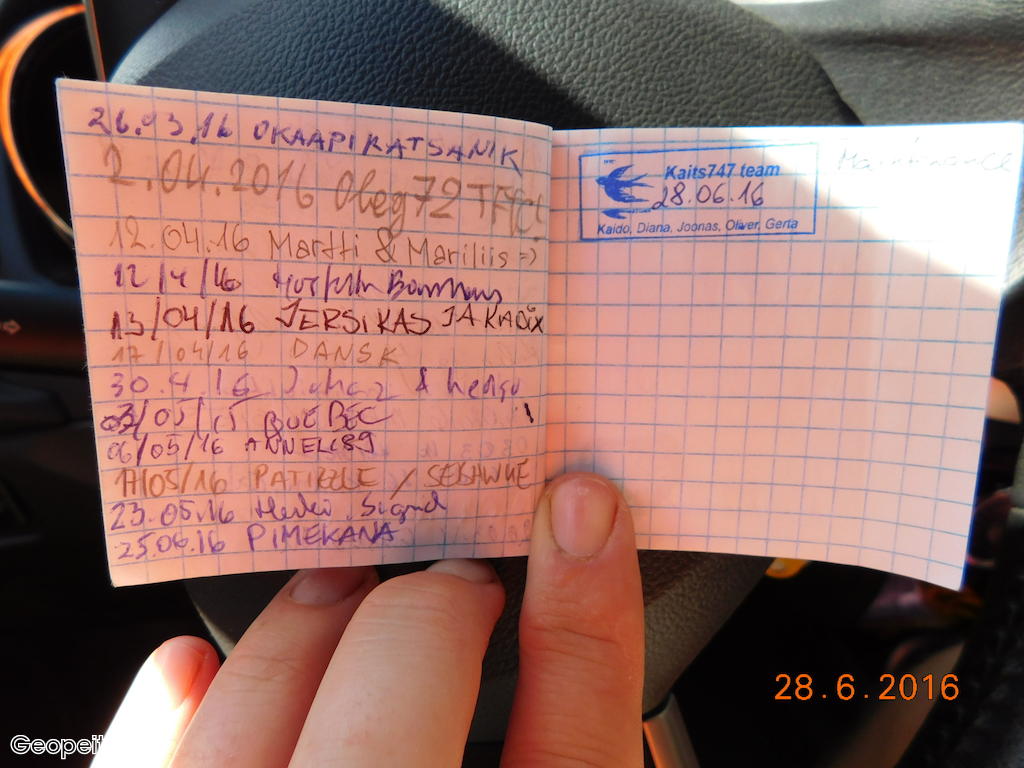 26.03.16 OKAAPIKATSANIK
2.04.2016 Oleg72 TFTC!
12.04.16 Martti & Mariliis =)
12/4/16
13/04/16 JERSIKAS JA KADIX
17/04/16 DANSK
30.4.16 &
03/05/15 QUEBEC
06/05/16 ANNELI89
17/05/16 PATIRZLE /
23.05.16 Sigrid
25.06.16 PIMEKANA
Kaits747 team
28.06.16
Kaido, Diana, Joonas, Oliver, Gerta
Maintinance
28.6.2016
Geopeit